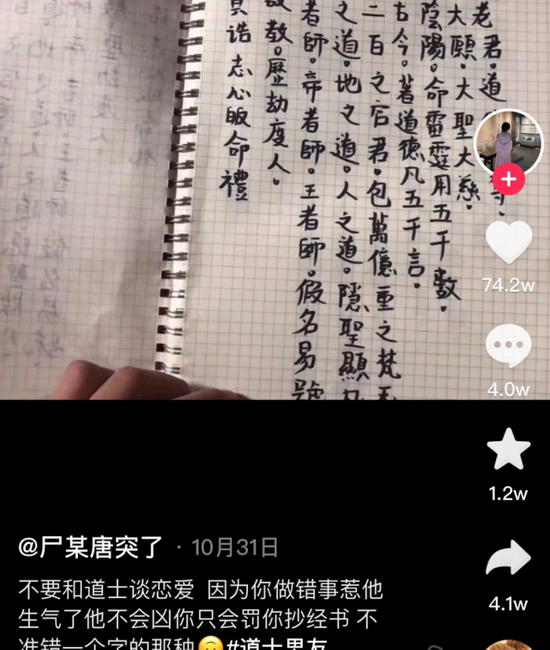 老君。道
大願。大聖大慈。
陰陽。命雷霆用五千數。
古今。著道德凡五千言。
二百之官君。包萬億重之梵
之道。地之道。人之道。隱聖顯
者師。帝者師。王者師。假名易號
教。歷劫度人。
誥 志心皈命禮
74.2w
4.0w
1.2w
4.1w
@尸某唐突了 · 10月31日
不要和道士谈恋爱 因为你做错事惹他
生气了他不会凶你只会罚你抄经书 不
准错一个字的那种🙃#道士男友